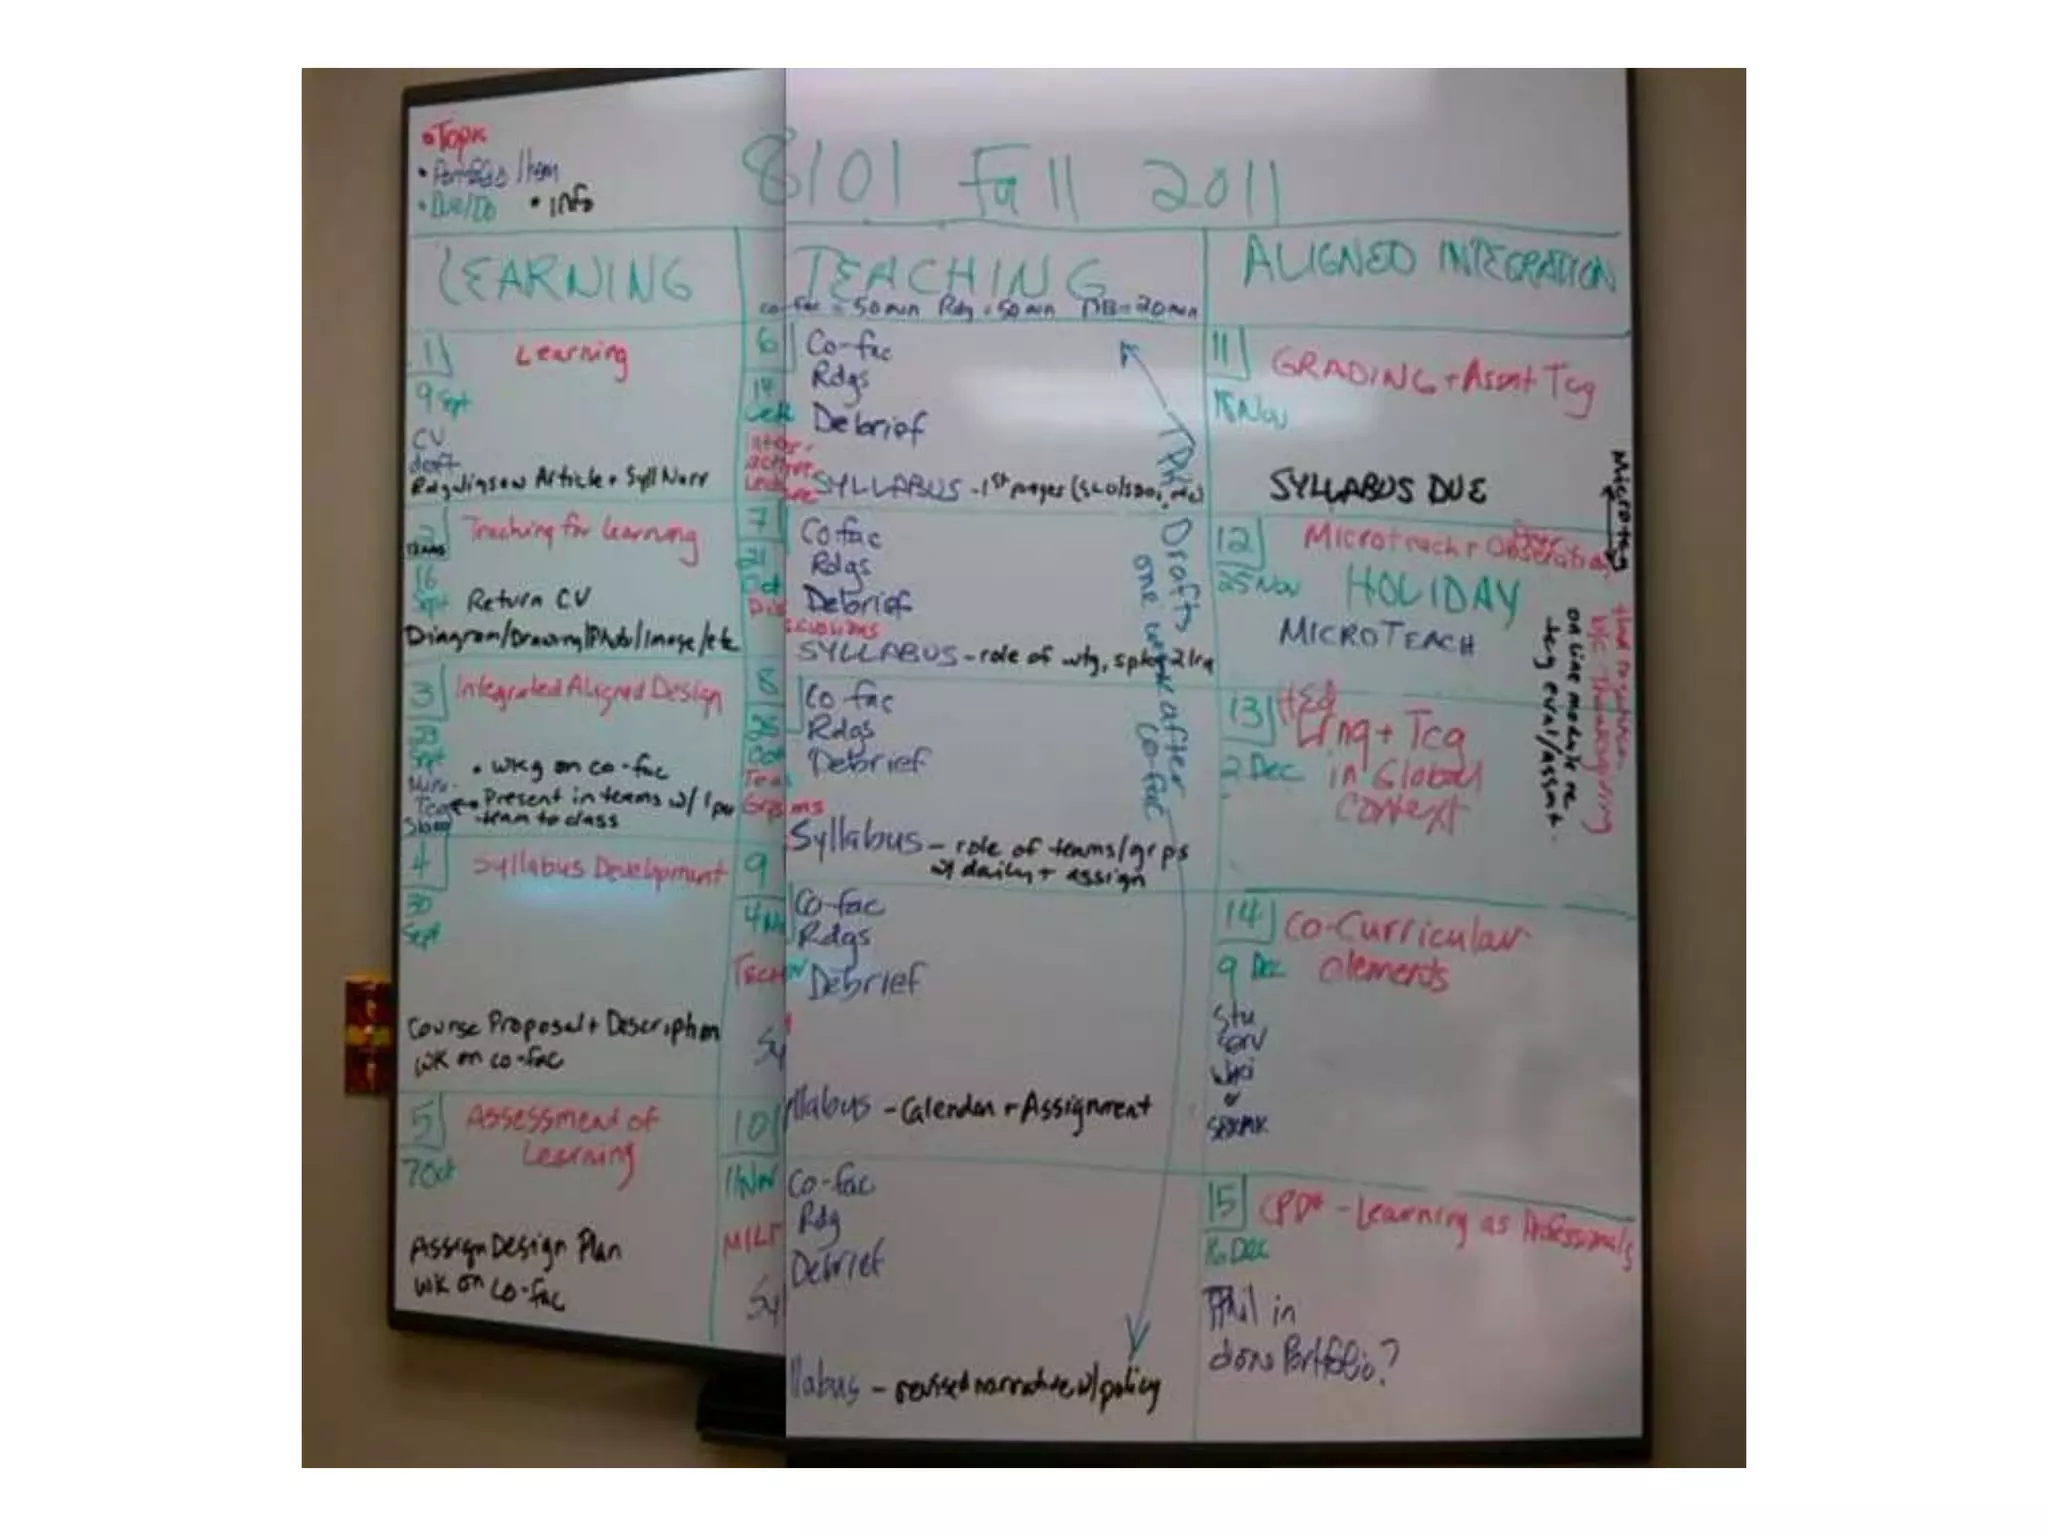 • Topic
• Portfolio Item
• Due/Do • Info
8101 Fall 2011
LEARNING
1 Learning
9 Sept
CV
draft
Rdg Jigsaw Article + Syll Narr
2 Teaching for Learning
16
Sept Return CV
Diagram/Drawing/Photo/Image/etc
3 Integrated Aligned Design
23
Sept
• wkg on co-fac
Present in teams w/ 1 per
team to class
4 Syllabus Development
30
Sept
Course Proposal + Description
wk on co-fac
5 Assessment of
Learning
7 Oct
Assign Design Plan
wk on co-fac
TEACHING
co-fac = 50 min Rdg = 50 min DB = 20 min
6 Co-fac
Rdgs
14
Debrief
Inter-
active
SYLLABUS - 1st pages
7 Co fac
Rdgs
21
Oct
Debrief
SYLLABUS - role of wtg,
8 Co fac
Rdgs
Debrief
Syllabus - role of teams/grps
w/ daily + assign
9 Co-fac
Rdgs
Debrief
llabus - Calendar + Assignment
10 Co-fac
11 Nov
Rdg
Debrief
Sy
llabus - revised narrative w/ policy
Drafts
one week after
co-fac
ALIGNED INTEGRATION
11 GRADING + Assmt Tcg
18 Nov
SYLLABUS DUE
12 Microteach + Peer Observation
25 Nov HOLIDAY
MICROTEACH
on line module re
tcg eval/assmt
13 Lrng + Tcg
2 Dec in Global
Context
14 Co-Curricular
elements
9 Dec
Stu
Serv
15 CPD+ - Learning as Professionals
16 Dec
in
done Portfolio?